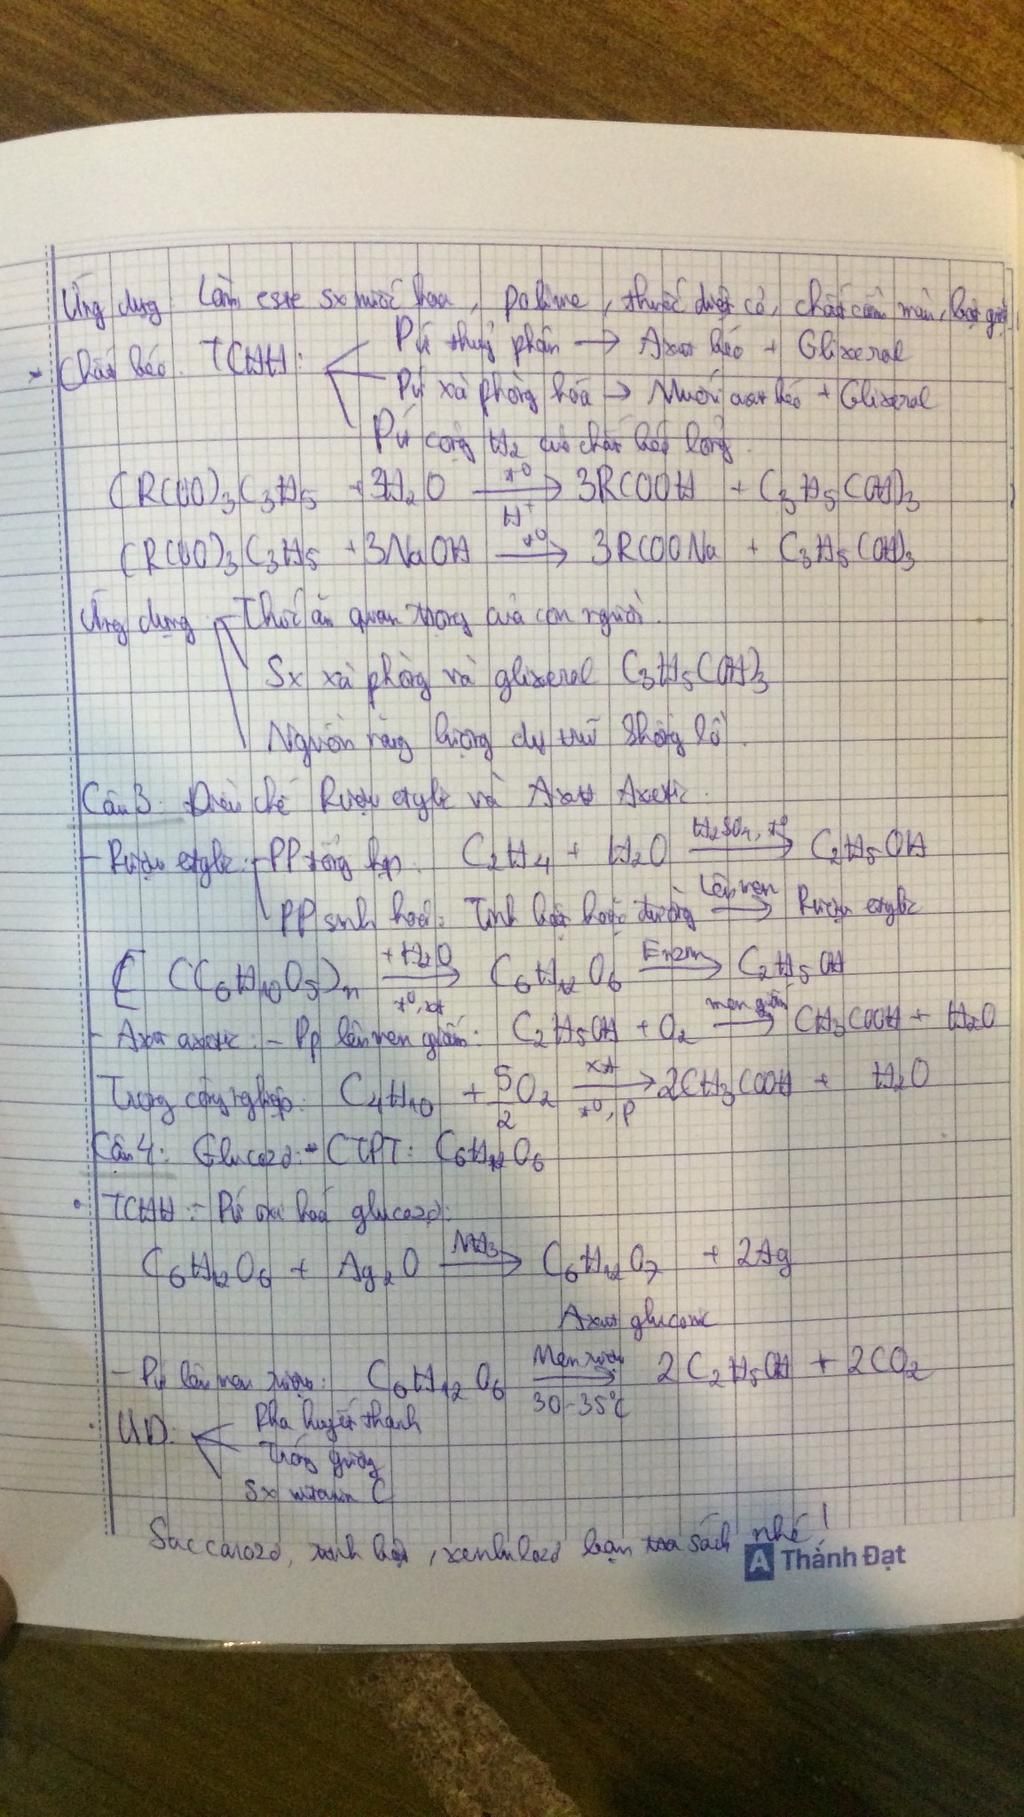 Ứng dụng Làm este sx nước hoa, polime, thuốc diệt cỏ, chất cầm màu,
Chất béo. TCHH: Pứ thuỷ phân → Axit béo + Glixerol
Pứ xà phòng hóa → Muối axit béo + Glixerol
Pứ cộng H₂ của chất béo lỏng
(RCOO)₃C₃H₅ + 3H₂O →(t⁰, H⁺) 3RCOOH + C₃H₅(OH)₃
(RCOO)₃C₃H₅ + 3NaOH →(t⁰) 3RCOONa + C₃H₅(OH)₃
Ứng dụng Thức ăn quan trọng của con người.
Sx xà phòng và glixerol C₃H₅(OH)₃
Nguồn năng lượng dự trữ khổng lồ.
Câu 3. Điều chế Rượu etylic và Axit Axetic.
- Rượu etylic: PP tổng hợp. C₂H₄ + H₂O →(H₂SO₄, t⁰) C₂H₅OH
PP sinh hoá: Tinh bột hoặc đường →(Lên men) Rượu etylic
[ (C₆H₁₀O₅)ₙ →(+H₂O, t⁰, xt) C₆H₁₂O₆ →(Enzim) C₂H₅OH
- Axit axetic: - Pp lên men giấm: C₂H₅OH + O₂ →(men giấm) CH₃COOH + H₂O
Trong công nghiệp: C₄H₁₀ + 5/2 O₂ →(xt, t⁰, p) 2CH₃COOH + H₂O
Câu 4: Glucozơ: - CTPT: C₆H₁₂O₆
• TCHH: - Pứ oxi hoá glucozơ:
C₆H₁₂O₆ + Ag₂O →(NH₃) C₆H₁₂O₇ + 2Ag
Axit gluconic
- Pứ lên men rượu: C₆H₁₂O₆ →(Men rượu, 30-35°C) 2C₂H₅OH + 2CO₂
• UD: Pha huyết thanh
Tráng gương
Sx vitamin C
Saccarozơ, tinh bột, xenlulozơ bạn tra sách nhé!
A Thành Đạt